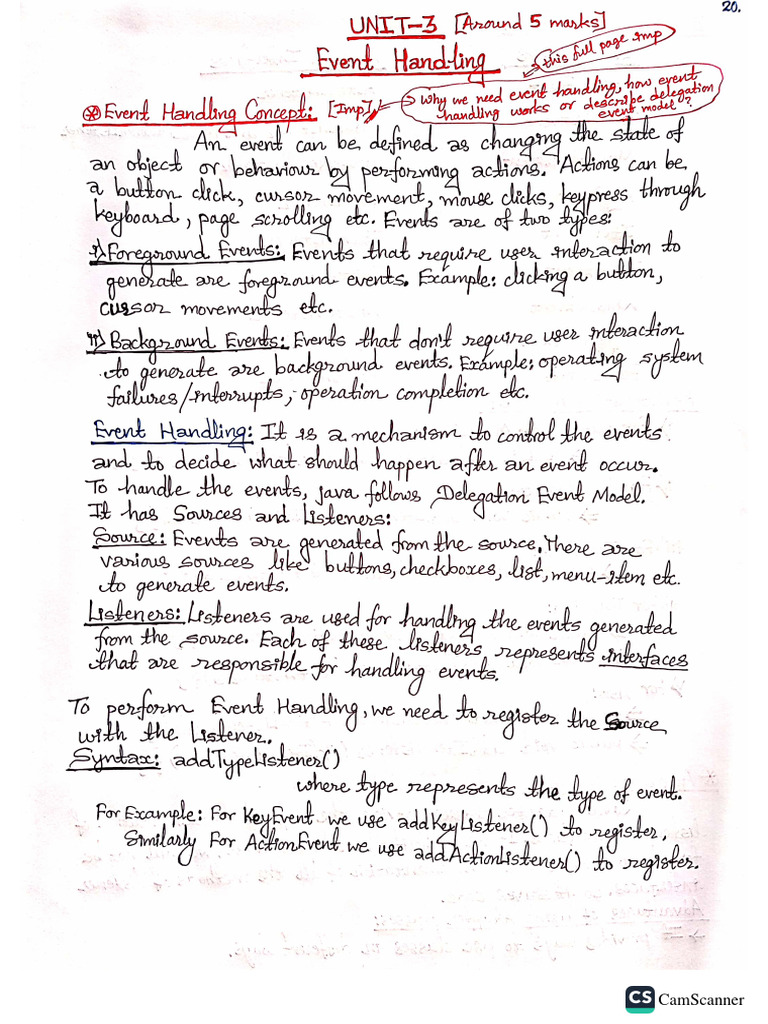 20.
UNIT-3 [Around 5 marks]
Event Handling
this full page imp
⊛ Event Handling Concept: [Imp]
Why we need event handling, how event
handling works or describe delegation
event model?
An event can be defined as changing the state of
an object or behaviour by performing actions. Actions can be
a button click, cursor movement, mouse clicks, keypress through
keyboard, page scrolling etc. Events are of two types:
i) Foreground Events: Events that require user interaction to
generate are foreground events. Example: clicking a button,
cursor movements etc.
ii) Background Events: Events that don't require user interaction
to generate are background events. Example: operating system
failures/interrupts, operation completion etc.
Event Handling: It is a mechanism to control the events
and to decide what should happen after an event occur.
To handle the events, java follows Delegation Event Model.
It has Sources and Listeners:
Source: Events are generated from the source. There are
various sources like buttons, checkboxes, list, menu-item etc.
to generate events.
Listeners: Listeners are used for handling the events generated
from the source. Each of these listeners represents interfaces
that are responsible for handling events.
To perform Event Handling, we need to register the Source
with the Listener.
Syntax: addTypeListener()
where type represents the type of event.
For Example: For KeyEvent we use addKeyListener() to register,
Similarly For ActionEvent we use addActionListener() to register.
CS CamScanner